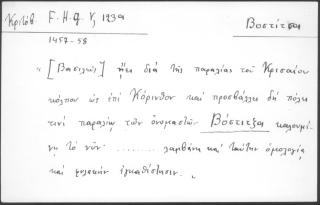 Κριτόβ. F. H. G. V, 123α Βοστίτσα
1457-58
"[Βασιλεὺς] ᾔει διὰ τῆς παραλίας τοῦ Κρισαίου
κόλπου ὡς ἐπὶ Κόρινθον καὶ προσβάλλει δὴ πόλει
τινὶ παραλίῳ τῶν ὀνομαστῶν Βόστιτζα καλουμέ-
νῃ τὸ νῦν ......... λαμβάνει καὶ ταύτην ὁμολογίᾳ
καὶ φυλακὴν ἐγκαθίστησιν."